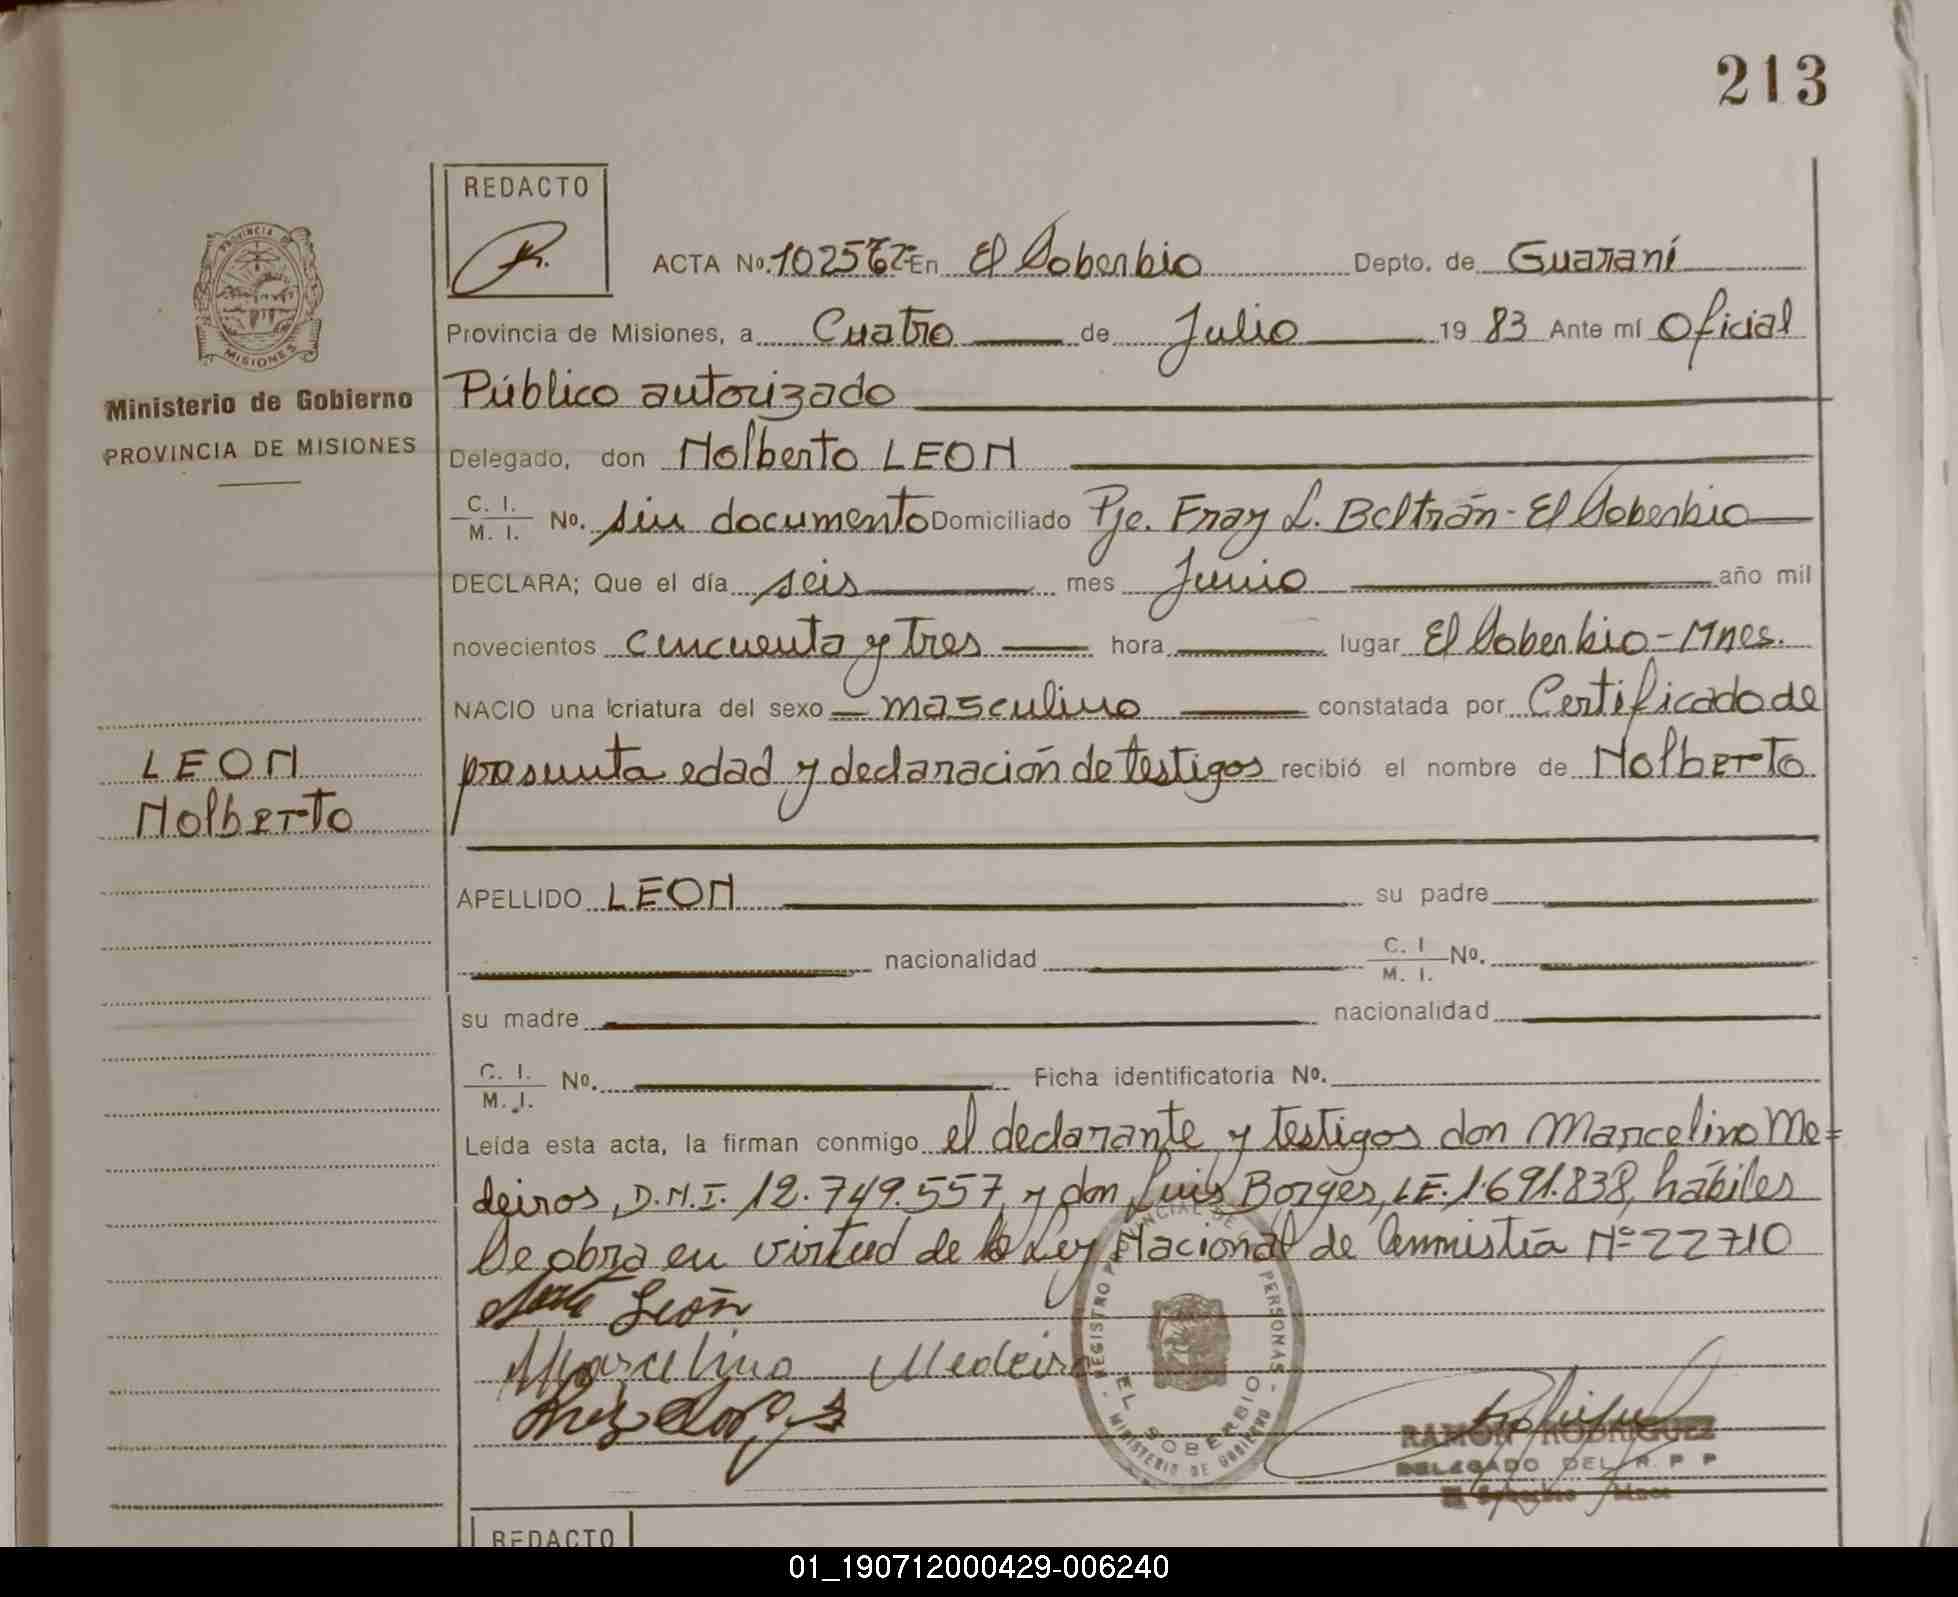 213
REDACTO
PROVINCIA DE
MISIONES
ACTA No. En El Soberbio Depto. de Guaraní
Provincia de Misiones, a Cuatro de Julio 19 83 Ante mí Oficial
Ministerio de Gobierno
Público autorizado
PROVINCIA DE MISIONES
Delegado, don Nolberto LEON
C. I.
M. I. No. sin documento Domiciliado Pje. Fray L. Beltrán - El Soberbio
DECLARA; Que el día seis mes Junio año mil
novecientos cincuenta y tres hora lugar El Soberbio - Mnes.
NACIO una criatura del sexo masculino constatada por Certificado de
LEON
presunta edad y declaración de testigos recibió el nombre de Nolberto
Nolberto
APELLIDO LEON su padre
nacionalidad C. I. M. I. No.
su madre nacionalidad
C. I.
M. I. No. Ficha identificatoria No.
Leída esta acta, la firman conmigo el declarante y testigos don Marcelino Me=
deiros, D.N.I. 12.749.557, y don Luis Borges, L.E. 1.691.838, hábiles
Se obra en virtud de la Ley Nacional de Amnistía Nº 22710
León
Marcelino Medeiro
REGISTRO PROVINCIAL DE PERSONAS
EL SOBERBIO
MINISTERIO DE GOBIERNO
RAMON RODRIGUEZ
DELEGADO DEL R. P P
El Soberbio Mnes
REDACTO
01_190712000429-006240